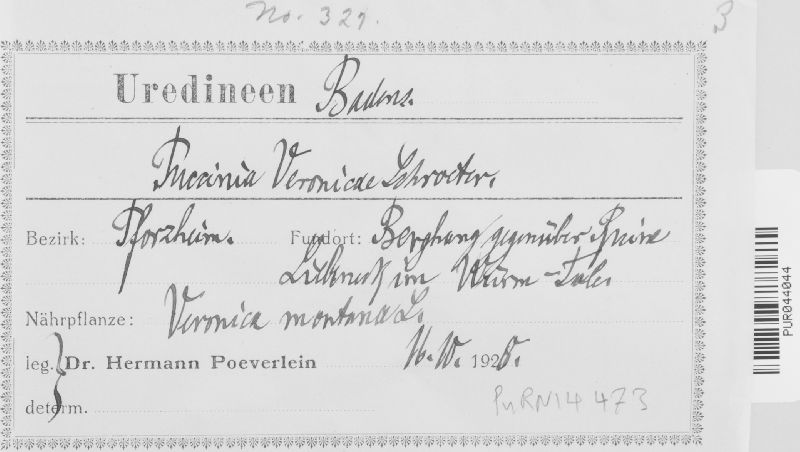 No. 321.
3
Uredineen Badens.
Puccinia Veronicae Schroeter.
Bezirk: Pforzheim. Fundort: Berghang gegenüber Ruine
Liebneck im Würm-Tale.
Nährpflanze: Veronica montana L.
leg. Dr. Hermann Poeverlein 16.10. 1926.
determ.
PuRN14473
PUR044044